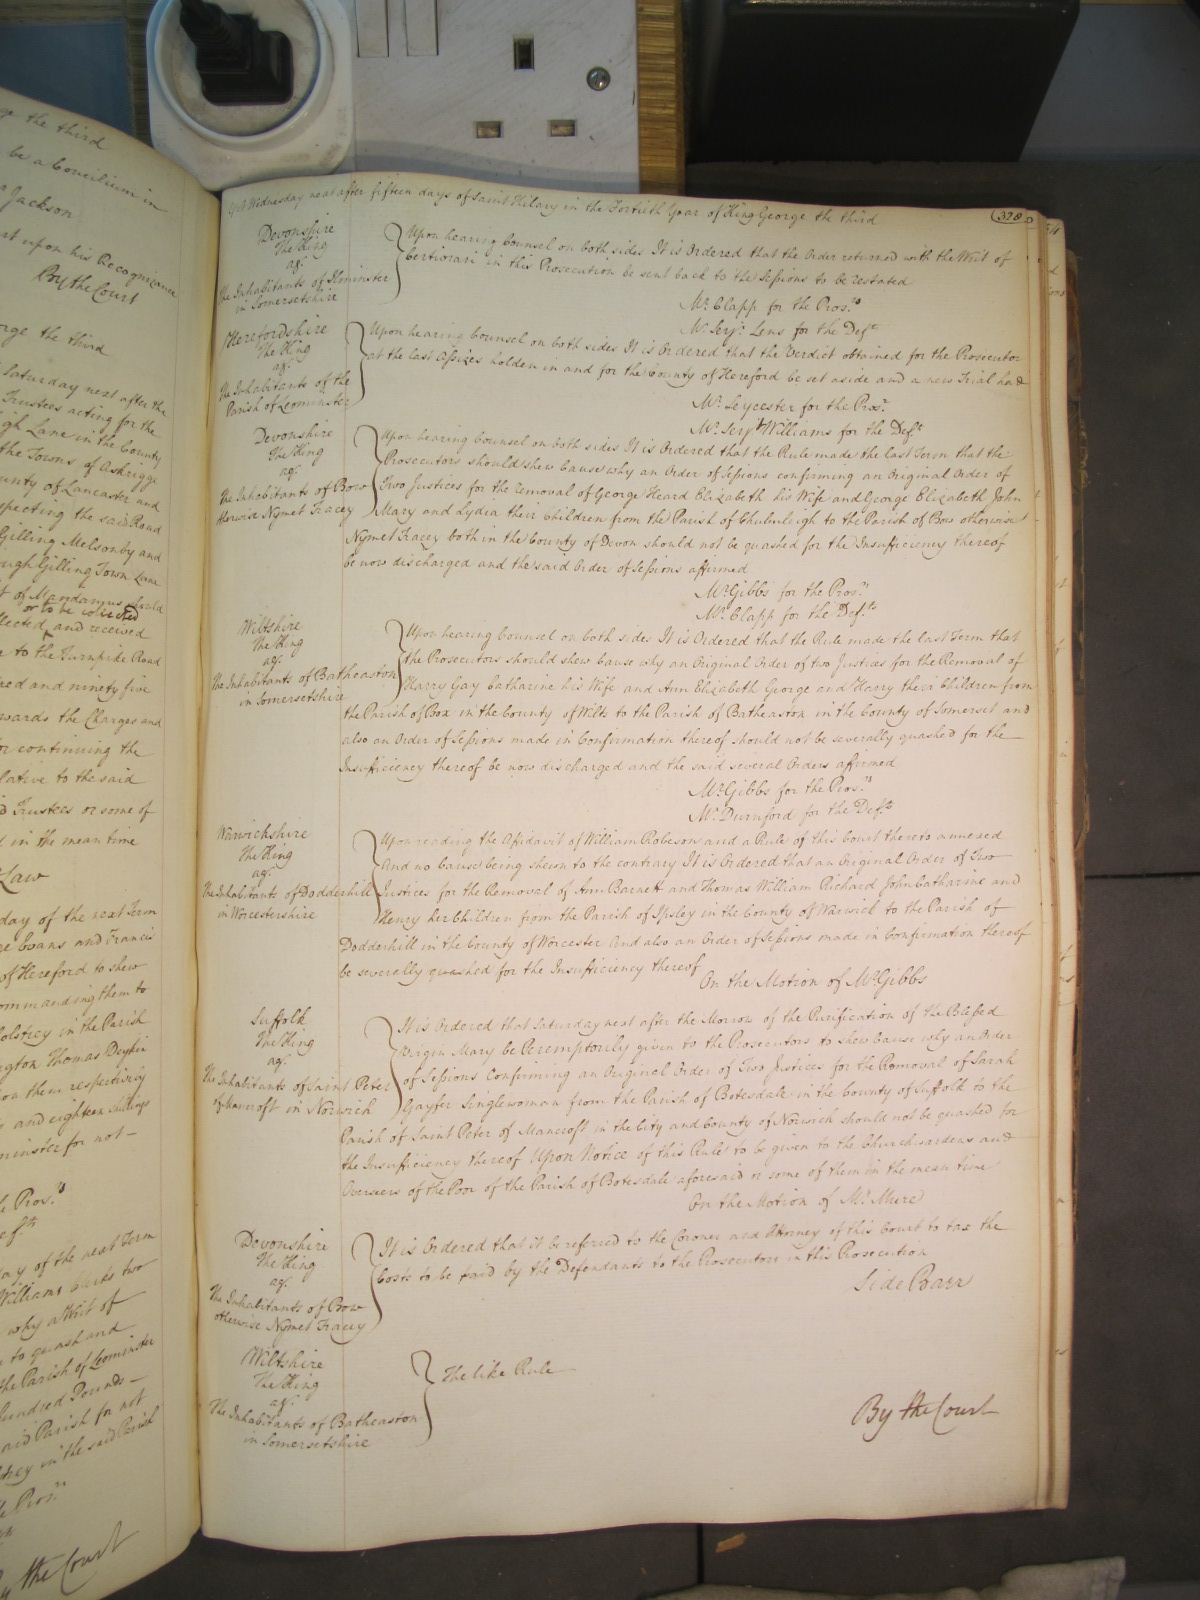 ge the third
be a Concilium in
Jackson
upon his Recognizance
By the Court
orge the third
Saturday next after the
Trustees acting for the
igh Lane in the County
the Towns of Askrigg
unty of Lancaster and
specting the said Road
Gilling Melsonby and
ough Gilling Town Lane
of Mandamus should
or to be collected
llected, and received
to the Turnpike Road
red and ninety five
wards the Charges and
or continuing the
lative to the said
Trustees or some of
in the mean time
Law
day of the next Term
Evans and Francis
of Hereford to shew
ommanding them to
in the Parish
Thomas
upon them respectively
and eighteen shillings
minster for not
Pros.rs
ef.ts
ay of the next Term
Williams Clerks two
why a Writ of
to quash and
the Parish of Leominster
hundred Pounds
said Parish for not
in the said Parish
Pros.rs
the Court
Yet Wednesday next after fifteen days of Saint Hilary in the Fortieth Year of King George the third
328
Devonshire
The King
agt.
The Inhabitants of Ilminster
in Somersetshire
Upon hearing Counsel on both sides It is Ordered that the Order returned with the Writ of
Certiorari in this Prosecution be sent back to the Sessions to be restated
Mr. Clapp for the Pros.rs
Mr. Serjt. Lens for the Def.ts
Herefordshire
The King
agt.
The Inhabitants of the
Parish of Leominster
Upon hearing Counsel on both sides It is Ordered that the Verdict obtained for the Prosecutor
at the last Assizes holden in and for the County of Hereford be set aside and a new Trial had
Mr. Leycester for the Pros.r
Mr. Serjt. Williams for the Def.ts
Devonshire
The King
agt.
The Inhabitants of Bow
otherwise Nymet Tracey
Upon hearing Counsel on both sides It is Ordered that the Rule made the last Term that the
Prosecutors should shew Cause why an Order of Sessions confirming an Original Order of
Two Justices for the Removal of George Heard Elizabeth his Wife and George Elizabeth John
Mary and Lydia their Children from the Parish of Chulmleigh to the Parish of Bow otherwise
Nymet Tracey both in the County of Devon should not be quashed for the Insufficiency thereof
be now discharged and the said Order of Sessions affirmed
Mr. Gibbs for the Pros.rs
Mr. Clapp for the Def.ts
Wiltshire
The King
agt.
The Inhabitants of Batheaston
in Somersetshire
Upon hearing Counsel on both sides It is Ordered that the Rule made the last Term that
the Prosecutors should shew Cause why an Original Order of two Justices for the Removal of
Harry Gay Catharine his Wife and Ann Elizabeth George and Harry their Children from
the Parish of Box in the County of Wilts to the Parish of Batheaston in the County of Somerset and
also an Order of Sessions made in Confirmation thereof should not be severally quashed for the
Insufficiency thereof be now discharged and the said several Orders affirmed
Mr. Gibbs for the Pros.rs
Mr. Durnford for the Def.ts
Warwickshire
The King
agt.
The Inhabitants of Dodderhill
in Worcestershire
Upon reading the Affidavit of William Robeson and a Rule of this Court thereto annexed
And no Cause being shewn to the contrary It is Ordered that an Original Order of Two
Justices for the Removal of Ann Barnett and Thomas William Richard John Catharine and
Henry her Children from the Parish of Ipsley in the County of Warwick to the Parish of
Dodderhill in the County of Worcester And also an Order of Sessions made in Confirmation thereof
be severally quashed for the Insufficiency thereof
On the Motion of Mr. Gibbs
Suffolk
The King
agt.
The Inhabitants of Saint Peter
of Mancroft in Norwich
It is Ordered that Saturday next after the Morrow of the Purification of the Blessed
Virgin Mary be Peremptorily given to the Prosecutors to shew Cause why an Order
of Sessions Confirming an Original Order of Two Justices for the Removal of Sarah
Gayfer Singlewoman from the Parish of Botesdale in the County of Suffolk to the
Parish of Saint Peter of Mancroft in the City and County of Norwich should not be quashed for
the Insufficiency thereof Upon Notice of this Rule to be given to the Churchwardens and
Overseers of the Poor of the Parish of Botesdale aforesaid or some of them in the mean time
On the Motion of Mr. Mure
Devonshire
The King
agt.
The Inhabitants of Bow
otherwise Nymet Tracey
It is Ordered that it be referred to the Coroner and Attorney of this Court to tax the
Costs to be paid by the Defendants to the Prosecutors in this Prosecution
Side Barr
Wiltshire
The King
agt.
The Inhabitants of Batheaston
in Somersetshire
The like Rule
By the Court